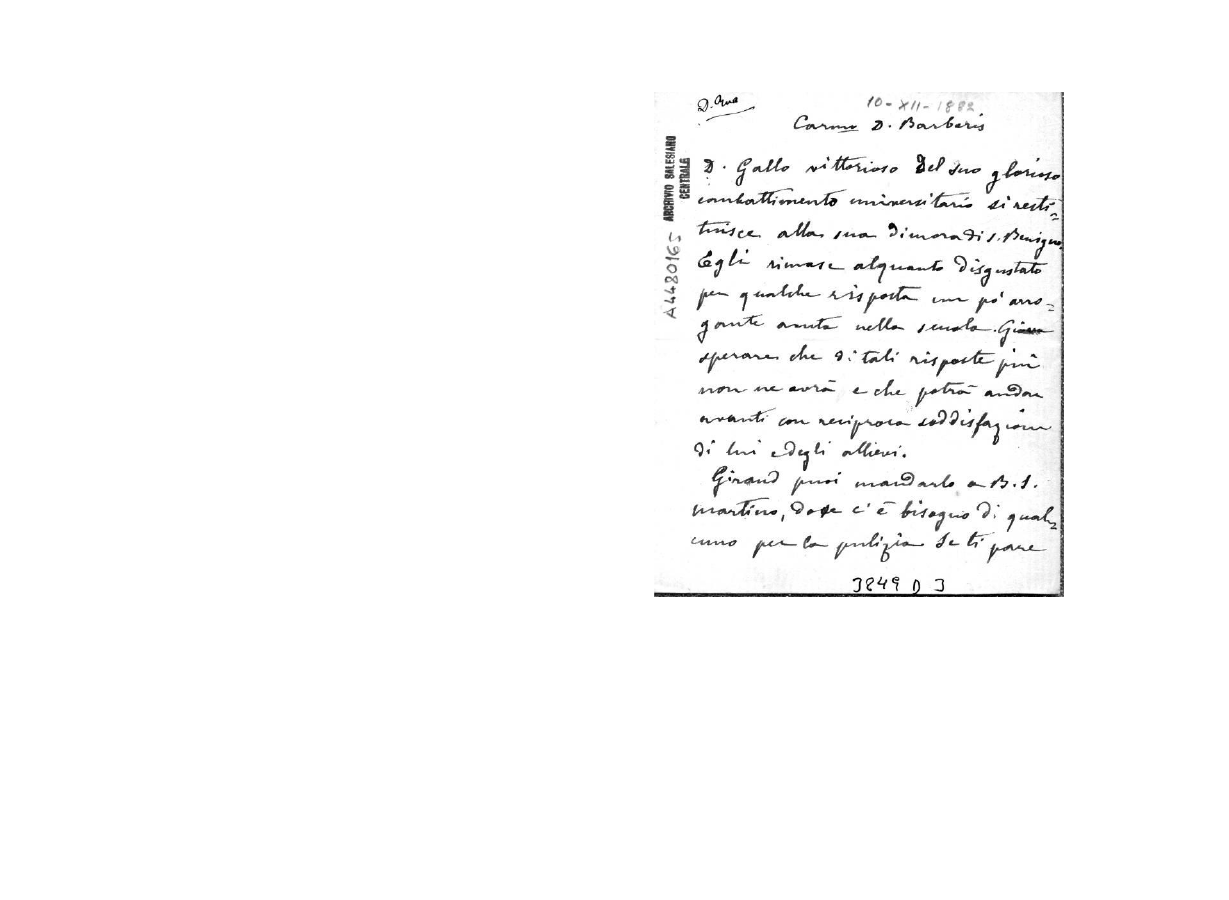 D. Rua
10-XII-1882
Carmo D. Barberis
D. Gallo vittorioso del suo glorioso
combattimento universitario si resti=
tuisce alla sua dimora di S. Benigno.
Egli rimase alquanto disgustato
per qualche risposta un po' arro=
gante avuta nella scuola. Giova
sperare che di tali risposte più
non ne avrà e che potrà andare
avanti con reciproca soddisfazione
di lui e degli allievi.
Giraud puoi mandarlo a B. S.
Martino, dove c'è bisogno di qualc=
uno per la pulizia se ti pare
3849 D 3
ARCHIVIO SALESIANO
CENTRALE
A4480165